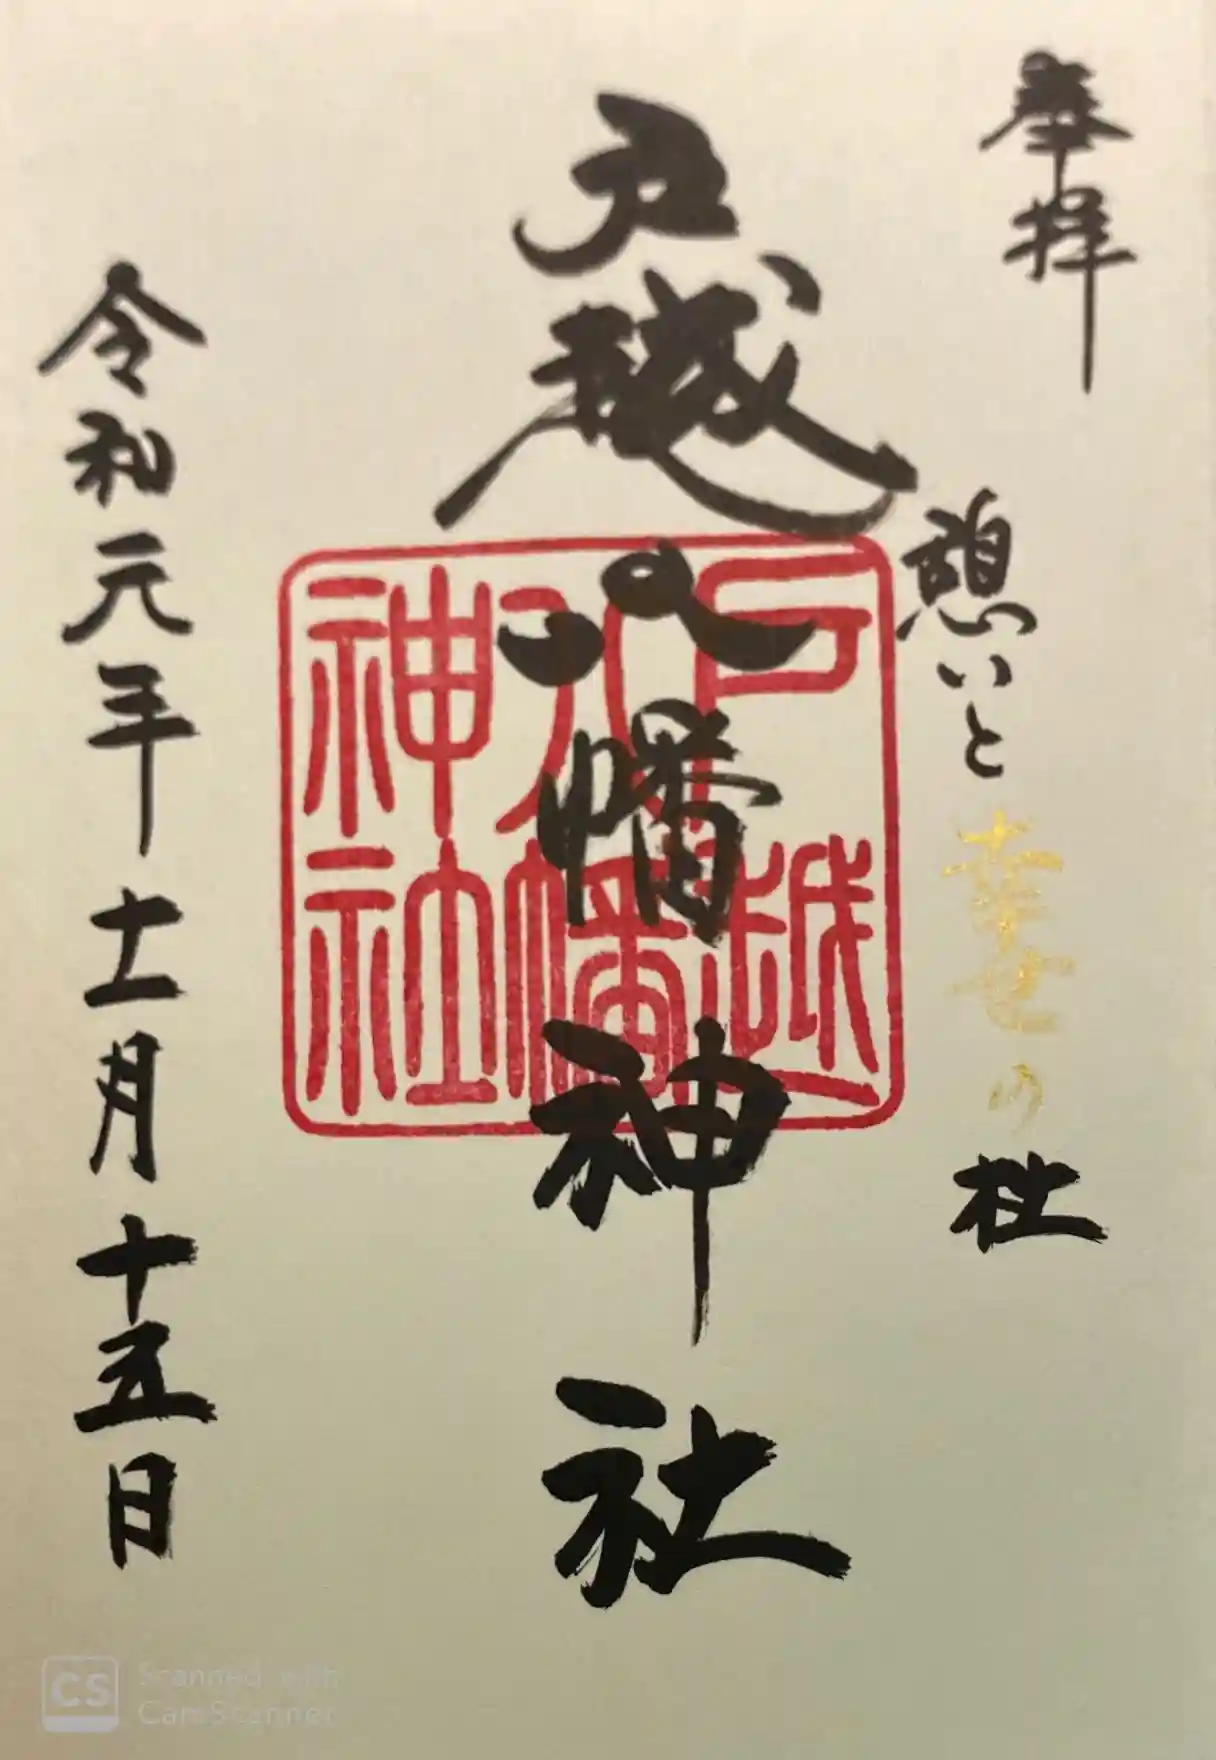 奉拝
憩いと幸せの杜
戸越八幡神社
戸越
八幡
神社
令和元年十一月十五日
CS
Scanned with
CamScanner